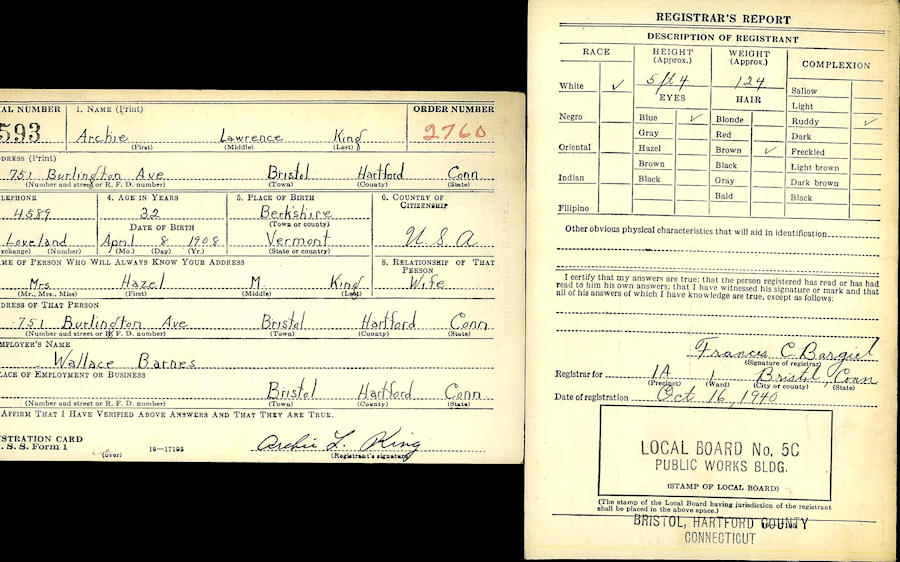 AL NUMBER 1. NAME (Print) ORDER NUMBER
593 Archie Lawrence King 2760
(First) (Middle) (Last)
DRESS (Print)
751 Burlington Ave Bristol Hartford Conn
(Number and street or R. F. D. number) (Town) (County) (State)
LEPHONE 4. AGE IN YEARS 5. PLACE OF BIRTH 6. COUNTRY OF CITIZENSHIP
4589 32 Berkshire
(Town or county)
DATE OF BIRTH
Loveland April 8 1908 Vermont U S A
xchange) (Number) (Mo.) (Day) (Yr.) (State or country)
ME OF PERSON WHO WILL ALWAYS KNOW YOUR ADDRESS 8. RELATIONSHIP OF THAT PERSON
Mrs Hazel M King Wife
(Mr., Mrs., Miss) (First) (Middle) (Last)
DRESS OF THAT PERSON
751 Burlington Ave Bristol Hartford Conn
(Number and street or R. F. D. number) (Town) (County) (State)
MPLOYER'S NAME
Wallace Barnes
LACE OF EMPLOYMENT OR BUSINESS
Bristol Hartford Conn
(Number and street or R. F. D. number) (Town) (County) (State)
AFFIRM THAT I HAVE VERIFIED ABOVE ANSWERS AND THAT THEY ARE TRUE.
ISTRATION CARD
. S. S. Form 1 (over) 16—17105 Archie L. King
(Registrant's signature)
REGISTRAR'S REPORT
DESCRIPTION OF REGISTRANT
RACE HEIGHT (Approx.) WEIGHT (Approx.) COMPLEXION
White ✓ 5 ft 4 124 Sallow
EYES HAIR Light
Negro Blue ✓ Blonde Ruddy ✓
Gray Red Dark
Oriental Hazel Brown ✓ Freckled
Brown Black Light brown
Indian Black Gray Dark brown
Bald Black
Filipino
Other obvious physical characteristics that will aid in identification
I certify that my answers are true; that the person registered has read or has had
read to him his own answers; that I have witnessed his signature or mark and that
all of his answers of which I have knowledge are true, except as follows:
Francis C. Bargiel
(Signature of registrar)
Registrar for 1A 1 Bristol, Conn
(Precinct) (Ward) (City or county) (State)
Date of registration Oct 16, 1940
LOCAL BOARD No. 5C
PUBLIC WORKS BLDG.
(STAMP OF LOCAL BOARD)
(The stamp of the Local Board having jurisdiction of the registrant
shall be placed in the above space.)
BRISTOL, HARTFORD COUNTY
CONNECTICUT